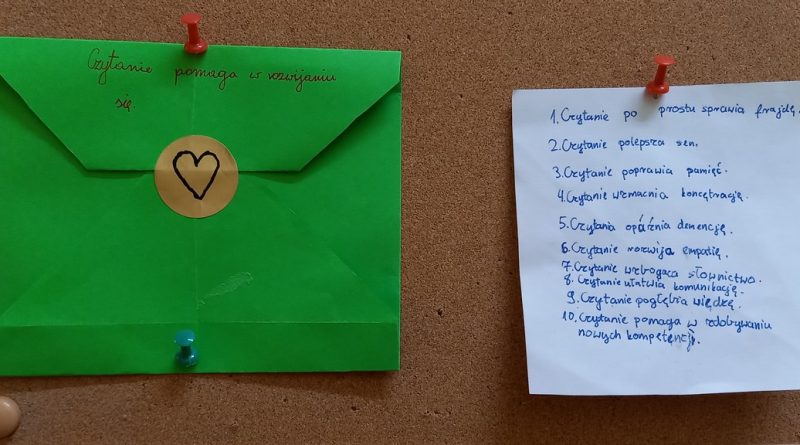 Czytanie pomaga w rozwijaniu
się.
1. Czytanie po prostu sprawia frajdę.
2. Czytanie polepsza sen.
3. Czytanie poprawia pamięć.
4. Czytanie wzmacnia koncętrację.
5. Czytania opóźnia demencję.
6. Czytanie rozwija empatię.
7. Czytanie wzbogaca słownictwo.
8. Czytanie ułatwia komunikację.
9. Czytanie pogłębia więdzę.
10. Czytanie pomaga w zdobywaniu
nowych kompętęncji.